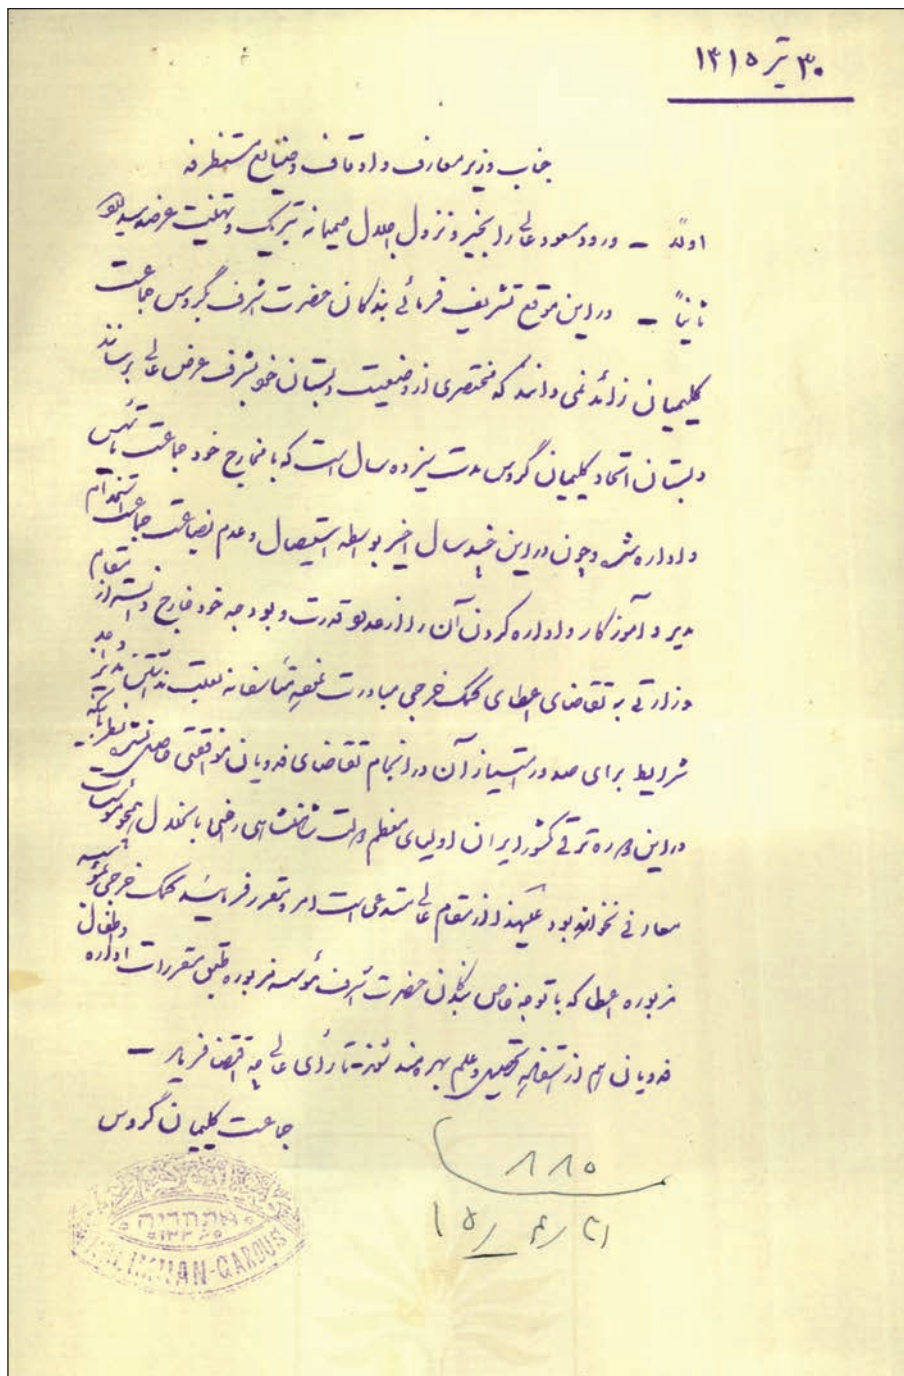 ۳۰ تیر ۱۳۱۵
جناب وزیر معارف و اوقاف و صنایع مستظرفه
اولاً – ورود مسعود عالی را بخیر و نزول اجلال صمیمانه تبریک و تهنیت عرضه میدارد
ثانیاً – در این موقع تشریف فرمائی بندگان حضرت اشرف بگروس جماعت
کلیمیان زائد نمی داند که مختصری از وضعیت دبستان خود بشرف عرض عالی برساند
دبستان اتحاد کلیمیان گروس مدت سیزده سال است که با مخارج خود جماعت تأسیس
و اداره شده و چون در این چند سال اخیر بواسطه استیصال و عدم بضاعت جماعت استخدام
مدیر و آموزگار و اداره کردن آن را از عهده قدرت و بودجه خود خارج دانسته از مقام
وزارتی به تقاضای اعطای کمک خرجی مبادرت متأسفانه بعلت نداشتن مدیر واجد
شرایط برای صدور امتیاز آن در انجام تقاضای فدویان موافقتی حاصل نشده نظر باینکه
در این دوره ترقی کشور ایران اولیای معظم دولت شاهنشاهی راضی بانحلال اینگونه مؤسسات
معارفی نخواهند بود علیهذا از مقام عالی مستدعی است امر و مقرر فرمایند کمک خرجی بمؤسسه
مزبوره اعطا که با توجه خاص بندگان حضرت اشرف مؤسسه مزبوره طبق مقررات اداره و اطفال
فدویان هم از استفاضه تحصیل و علم بهره مند شوند تا رأی عالی چه اقتضا فرماید –
جماعت کلیمیان گروس
۸۸۵
۱۵/۴/۳۱
אתחדיה
KALIMIAN-GAROUSS